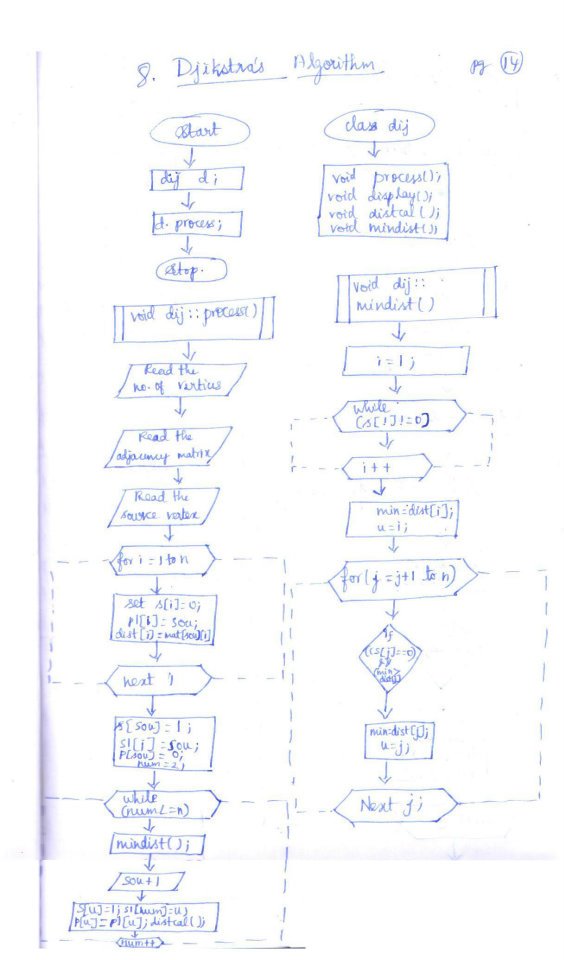 8. Djikstra's Algorithm
pg 14
Start
dij d;
d. process;
Stop.
void dij :: process()
Read the
no. of vertices
Read the
adjacency matrix
Read the
source vertex
for i = 1 to n
set s[i]=0;
p1[i] = sou;
dist[i]=mat[sou][i]
next i
s[sou] = 1;
s1[j] = sou;
p[sou] = 0;
num = 2;
while
(num<=n)
mindist();
sou+1
s[u]=1; s1[num]=u;
p[u]=p1[u]; distcal();
num++
class dij
void process();
void display();
void distcal();
void mindist();
void dij ::
mindist()
i = 1;
while
(s[i]!=0)
i++
min=dist[i];
u=i;
for(j=j+1 to n)
if
((s[j]==0)
&&
(min>
dist[j]
min=dist[j];
u=j;
Next j;